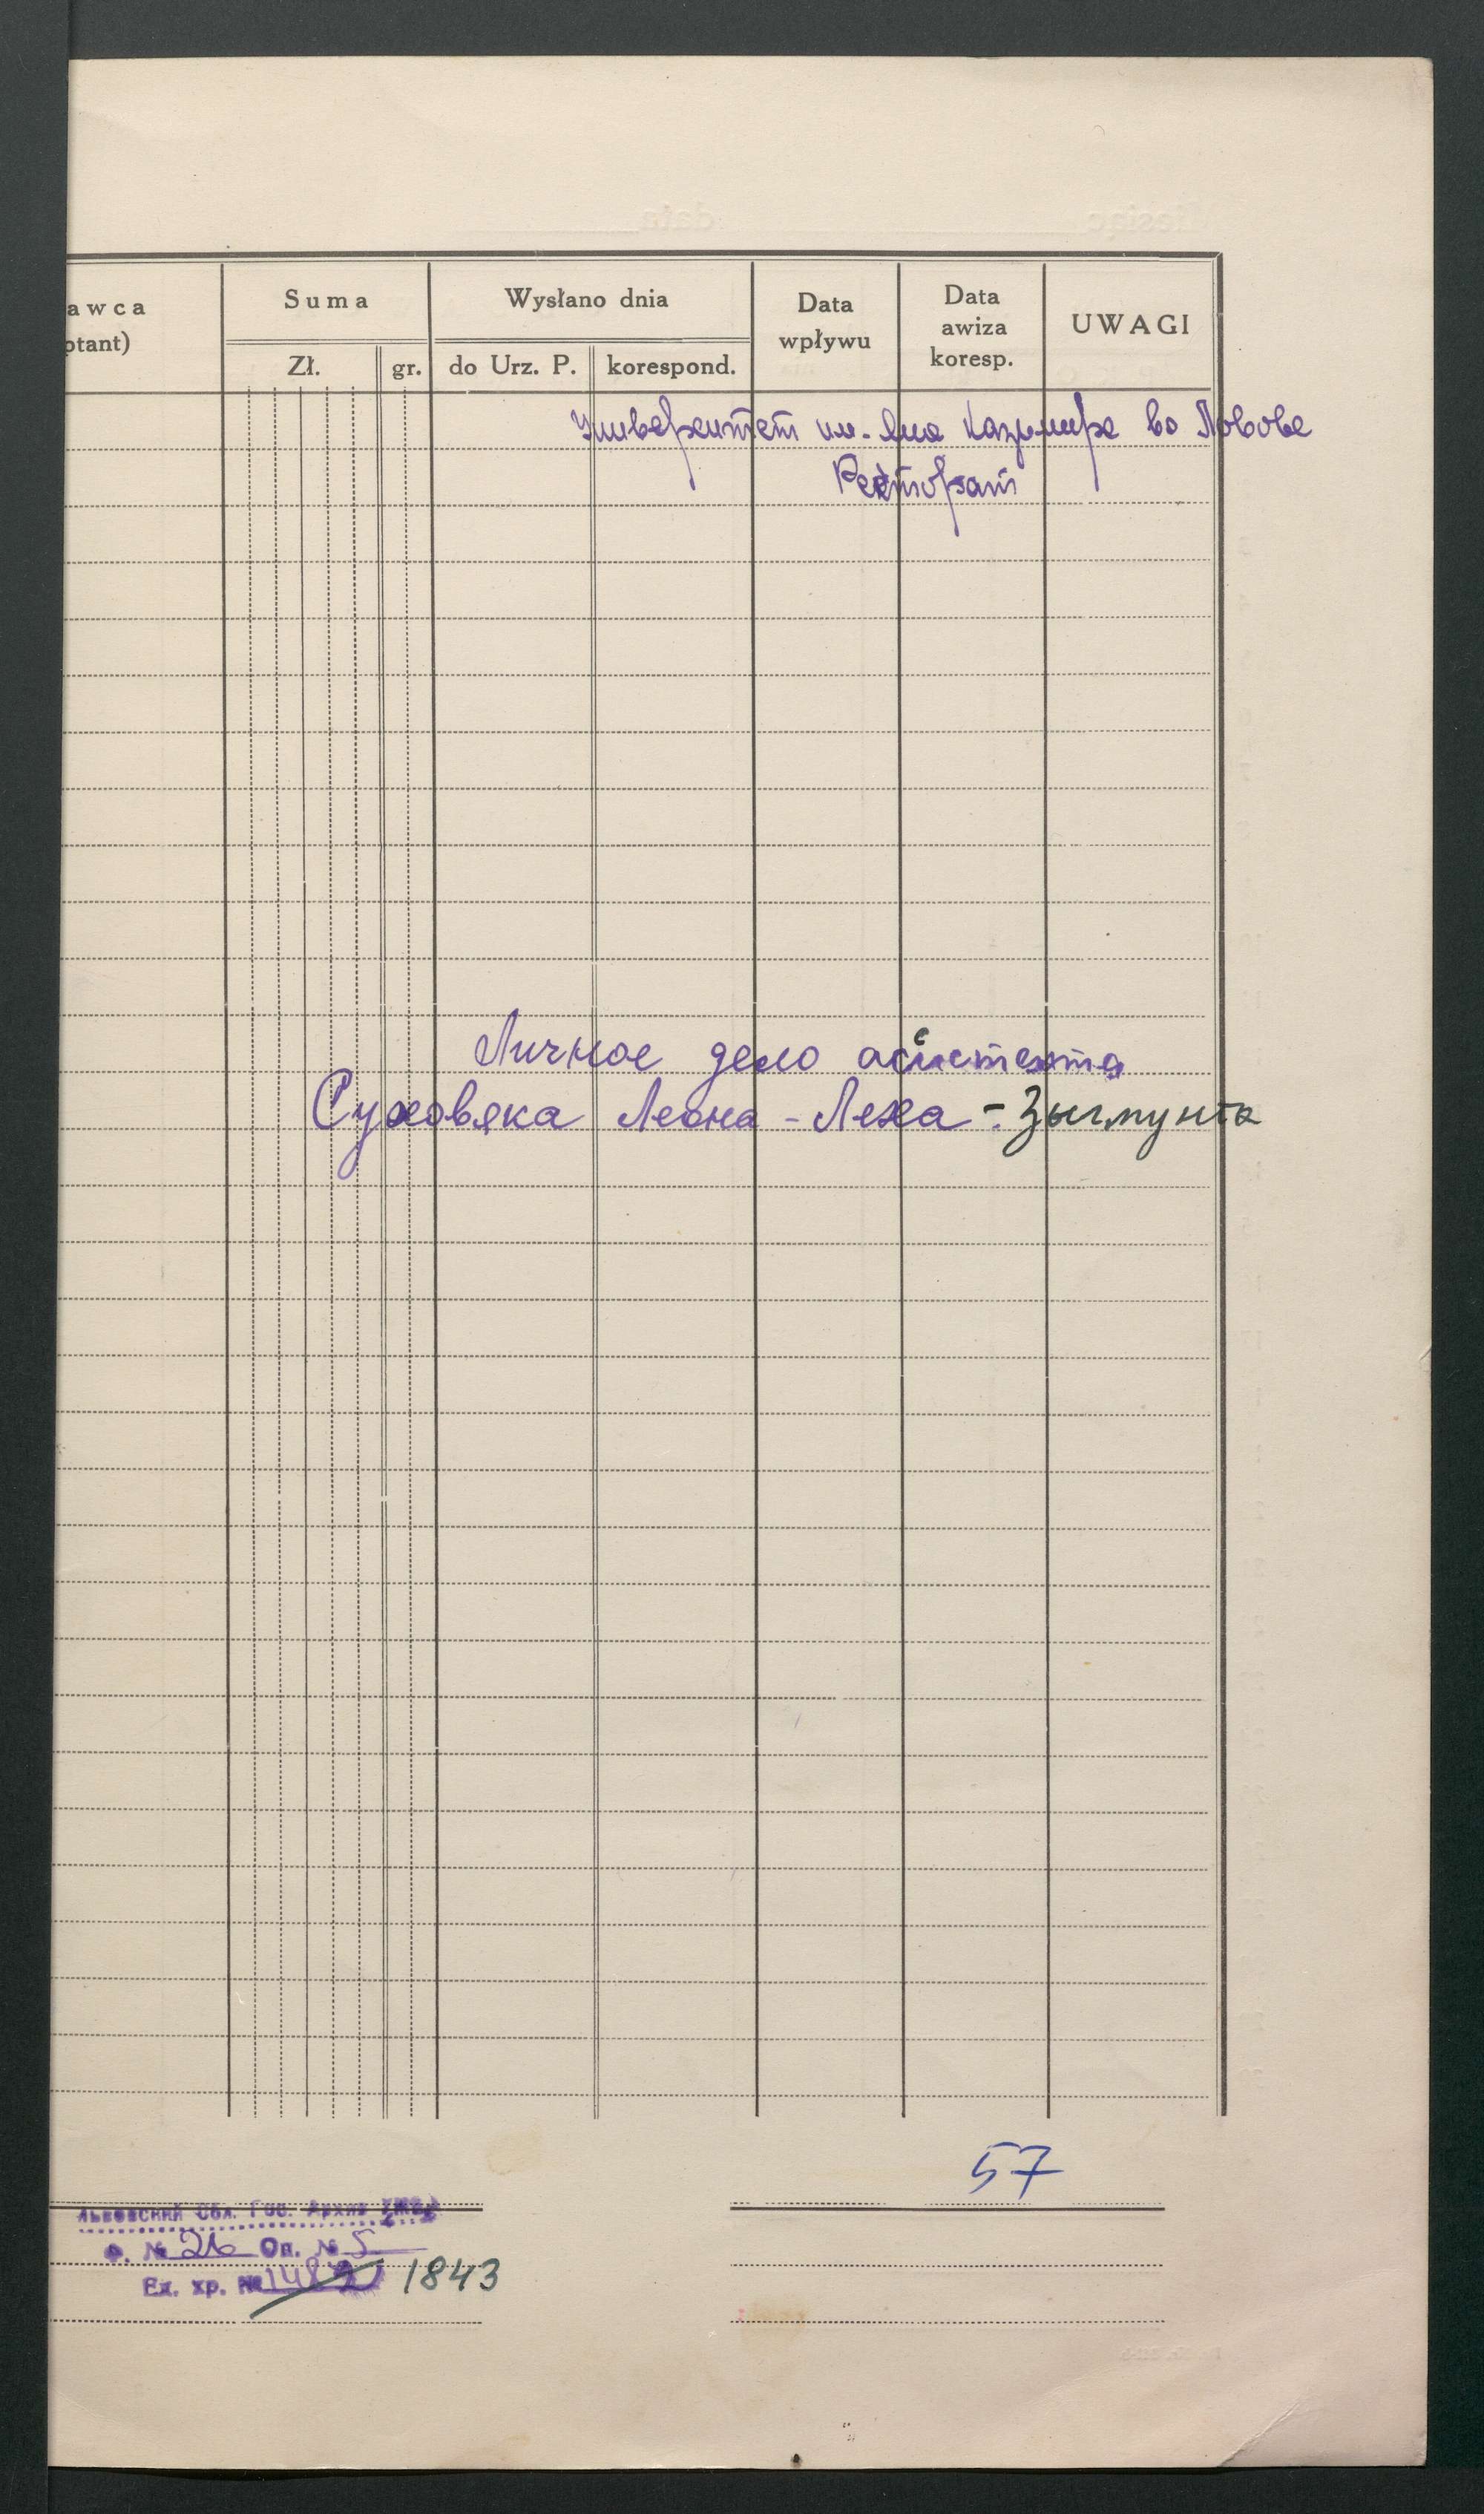 awca
ptant)
Suma
Zł.
gr.
Wysłano dnia
do Urz. P.
korespond.
Data
wpływu
Data
awiza
koresp.
UWAGI
Университет им. Яна Казимира во Львове
Ректорат
Личное дело асистента
Суховяка Леона-Леха-Зыгмунта
57
Львовский Обл. Гос. Архив
Ф. № 26 Оп. № 5
Ед. хр. № 1843